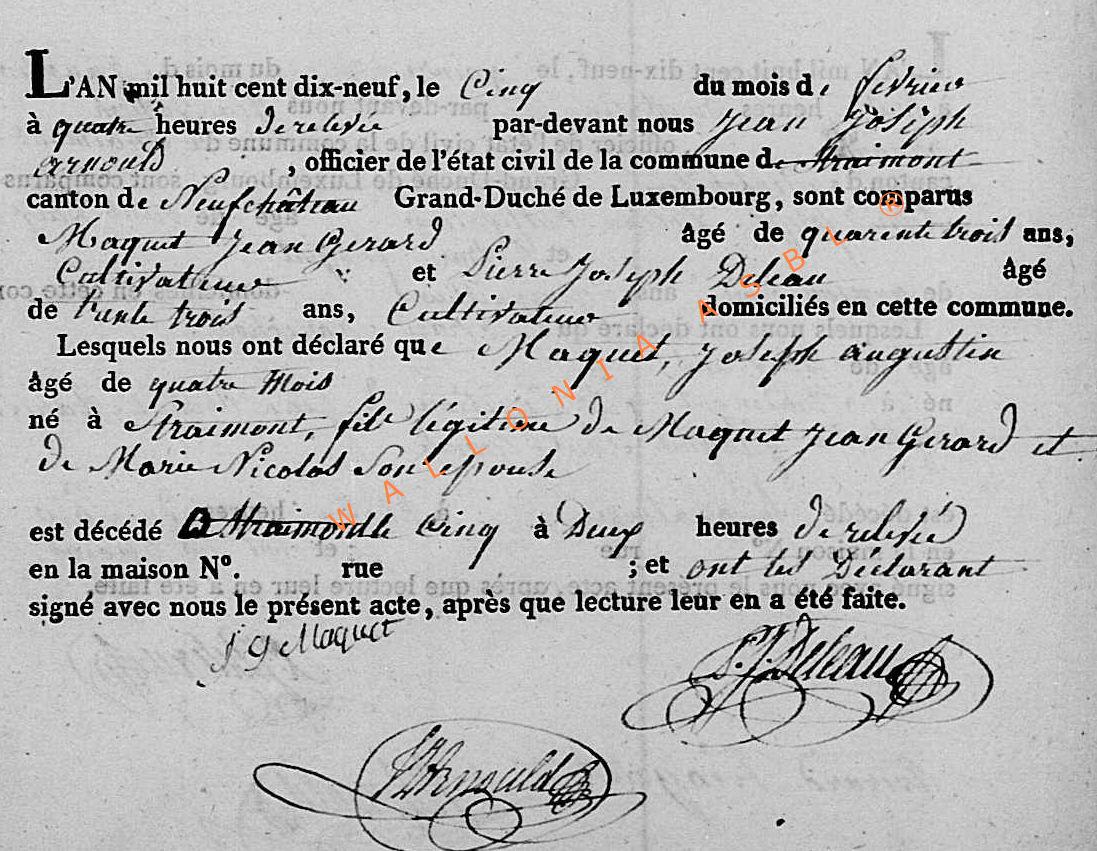 L'AN mil huit cent dix-neuf, le Cinq du mois de fevrier
à quatre heures de relevée par-devant nous jean joseph
arnould , officier de l'état civil de la commune de Straimont
canton de Neufchâteau Grand-Duché de Luxembourg, sont comparus
Maquet jean Gerard âgé de quarente trois ans,
Cultivateur et Pierre joseph Deleau âgé
de trente trois ans, Cultivateur domiciliés en cette commune.
Lesquels nous ont déclaré que Maquet, joseph augustin
âgé de quatre mois
né à Straimont, fils légitime de Maquet jean Gerard et
de Marie Nicolas son epouse
est décédé à Straimont le Cinq à Deux heures de relevée
en la maison N°. rue ; et ont les Déclarant
signé avec nous le présent acte, après que lecture leur en a été faite.
J G Maquet
P. J. Deleau
JJ Arnould
WALLONIA ASBL ®